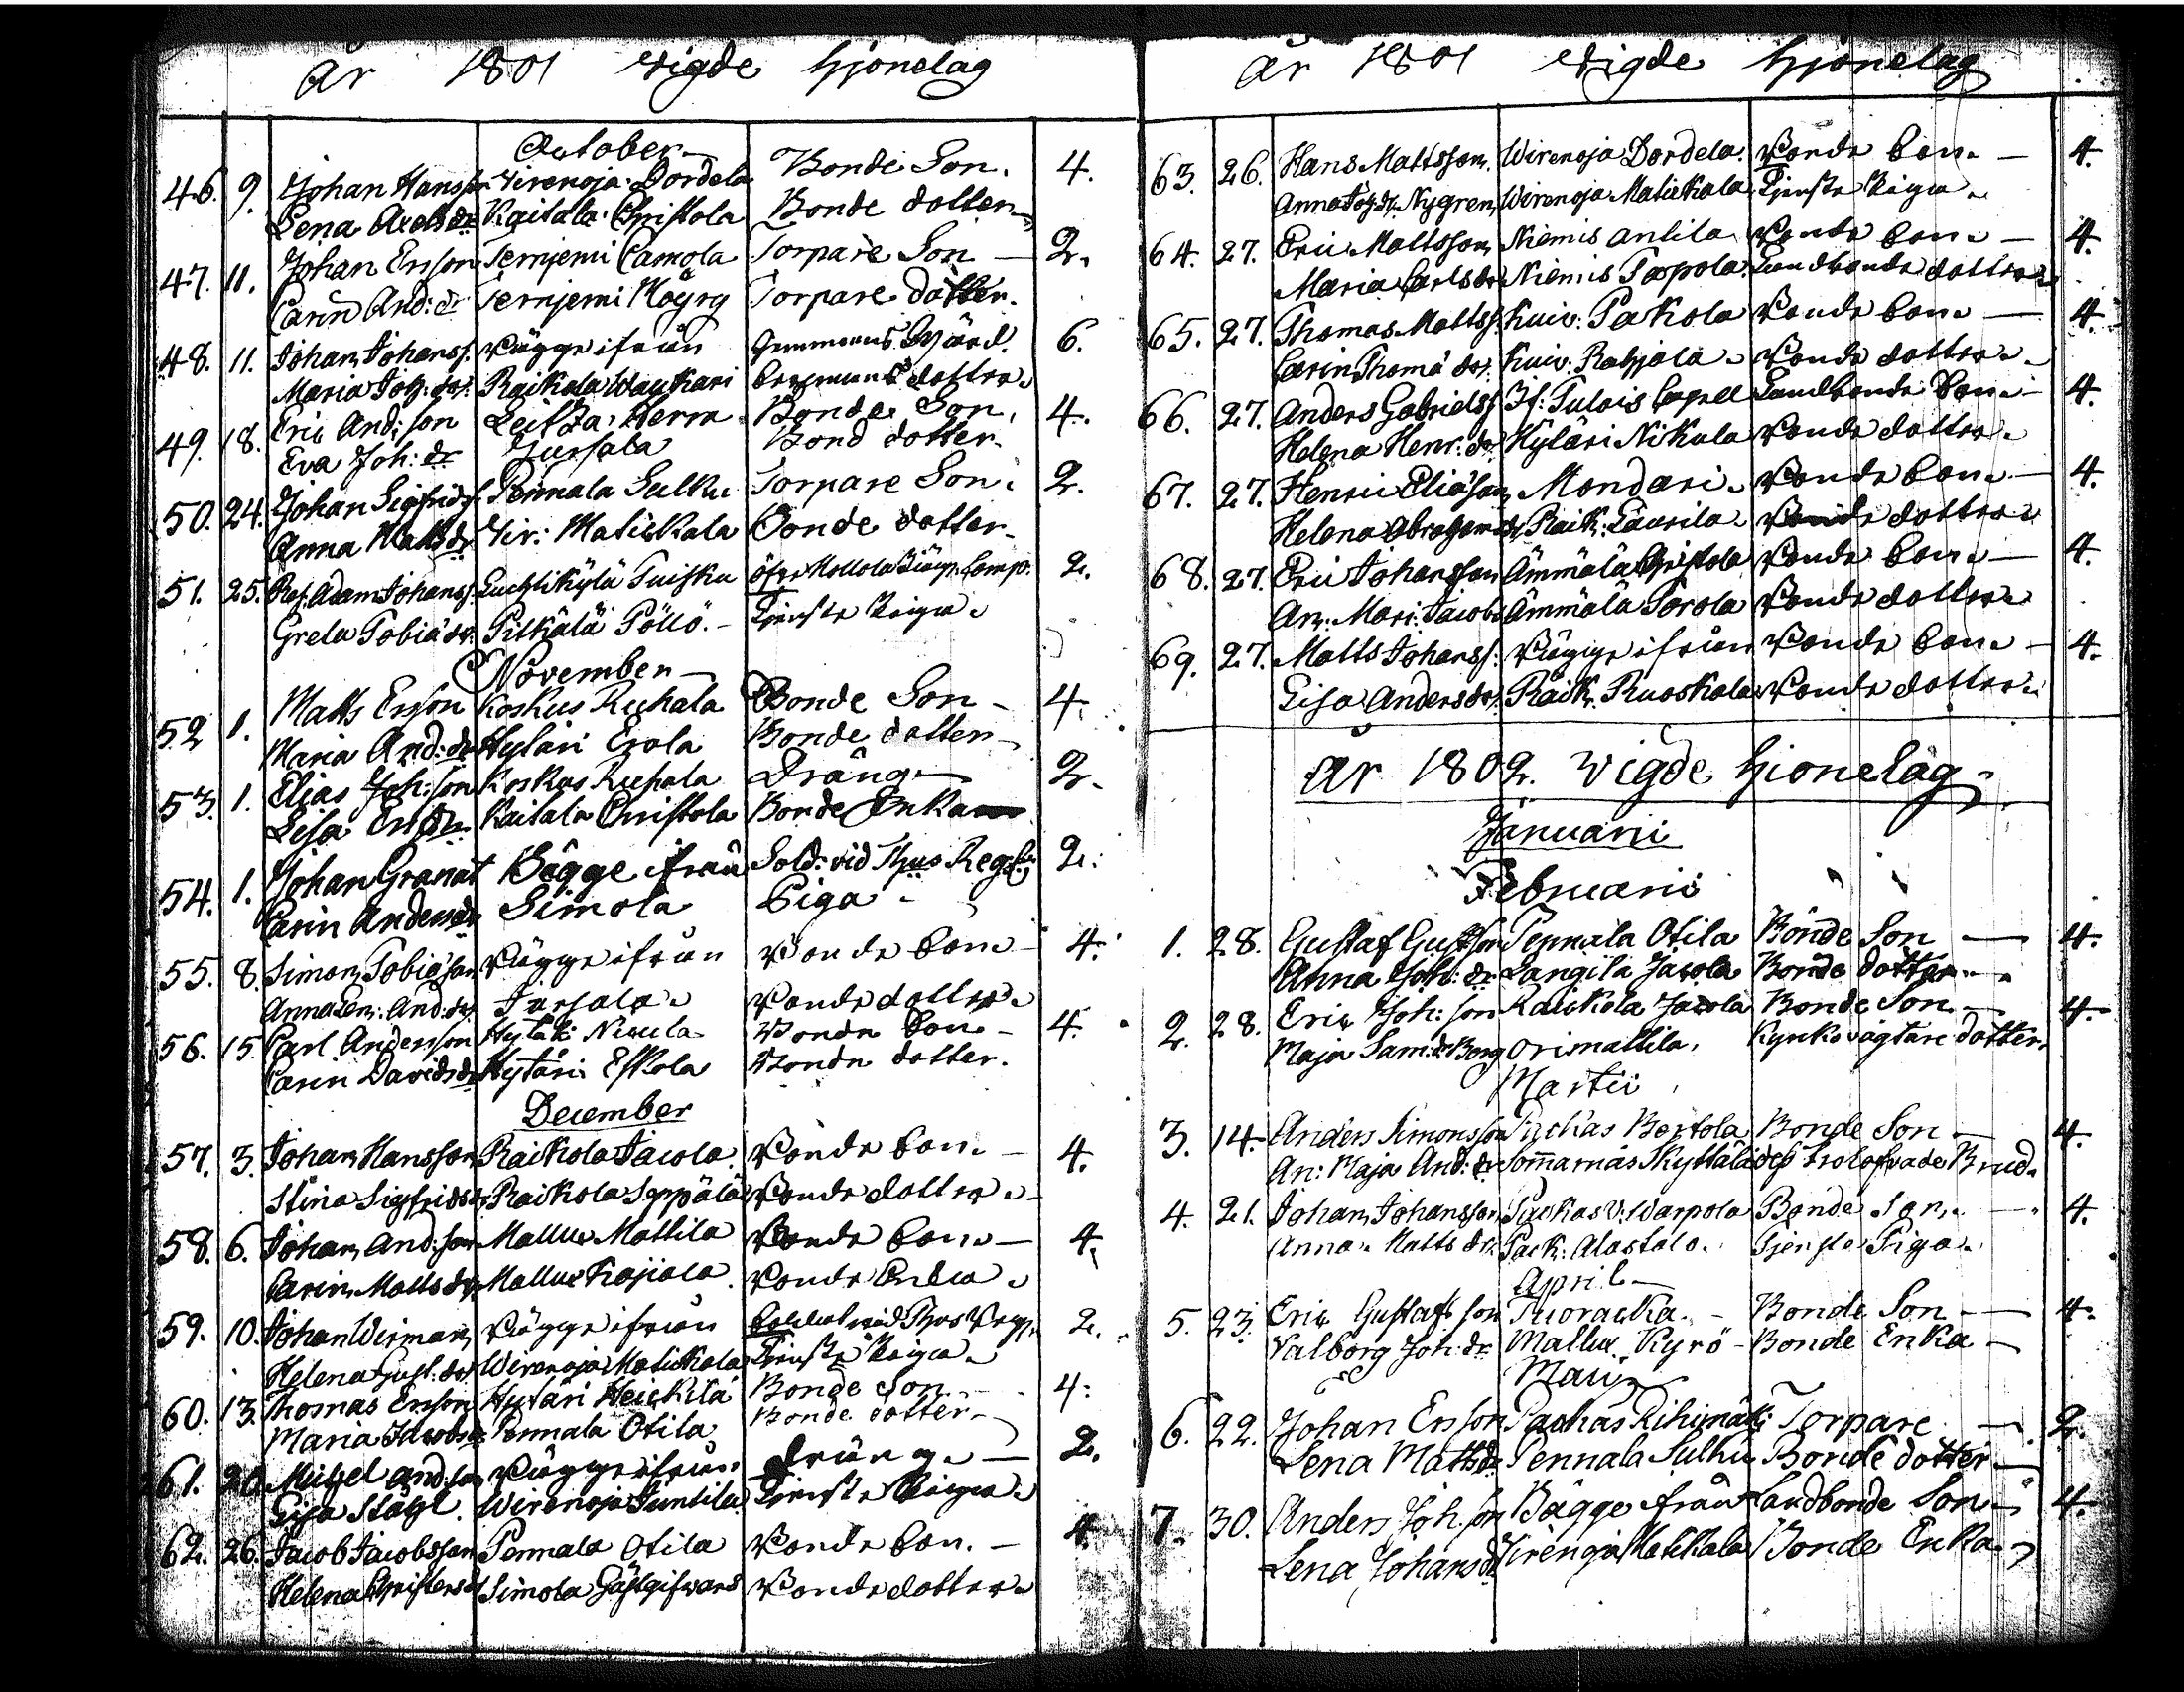 år 1801 vigde hjonelag
October
46. 9. Johan Hansson Virenoja Dordela Bonde Son. 4.
Lena Axelsdr Kaitala Christola Bonde dotter
47. 11. Johan Ersson Terrjerni Camola Torpare Son — 2.
Carin And: dr Terrjerni Köyry Torpare dotter.
48. 11. Johan Johanss. Bägge ifrån 6.
Maria Joh: dr. Raikala Waukari dotter.
49. 18. Eric And: son Leitza: Herra Bonde Son. 4.
Eva Joh: dr Jursala Bond dotter.
50. 24. Johan Sigfrids. Pennala Sulku Torpare Son. 2.
Anna Matts dr Vir: Matickala Bonde dotter.
51. 25. Adam Johanss. Luchtikylä Tuisku Hollola Comp. 2.
Greta Tobiä dr. Pitkälä Pöllö. — Tjenste Piga.
November
52 1. Matts Ersson Koskus Ruhala Bonde Son — 4.
Maria And: dr Hytäri Erola Bonde dotter
53. 1. Elias Joh: son Koskus Ruhala Dräng 2.
Lisa Ersdr Kaitala Christola Bonde Enka
54. 1. Johan Granat Bägge ifrån Sold: vid Thus Reg: 2.
Carin Andersdr Simola Piga
55. 8. Simon Tobiäson Bägge ifrån Bonde Son — 4.
Anna Len: And: dr Jursala. Bonde dotter.
56. 15. Carl Andersson Hytäri Nicula Bonde Son — 4.
Carin Davidsdr Hytäri Eskola Bonde dotter.
December
57. 3. Johan Hansson Raikola Jacola. Bonde Son. — 4.
Stina Sigfridsdr Raikola Seppälä Bonde dotter.
58. 6. Johan And: son Mallus Mattila Bonde Son. — 4.
Carin Matts dr. Mallus Kojiola. Bonde Enka.
59. 10. Johan Wirman Bägge ifrån Soldat vid Thus Reg. 2.
Helena Gust. dr Wirenoja Matickala Tjenste Piga.
60. 13. Thomas Ersson Hytäri Heickilä Bonde Son 4.
Maria Jacobsdr Pennala Otila Bonde dotter
61. 20. Michel And: son Bägge ifrån dräng. — 2.
Lisa Ståhl. Wirenoja Juntila Tjenste Piga.
62. 26. Jacob Jacobsson Pennala Otila Bonde Son. — 4.
Helena Christersdr Simola Gästgifvars Bonde dotter.
år 1801 vigde hjonelag
63. 26. Hans Mattsson. Wirenoja Dordela. Bonde Son. — 4.
Anna Joh. dr. Nygren, Wirenoja Matickala Tjenste Piga.
64. 27. Eric Mattsson Niemis Antila Bonde Son. — 4.
Maria Carlsdr Niemis Papola. Landbonde dotter.
65. 27. Thomas Mattss. Kuiv: Pakola Bonde Son. — 4.
Carin Thomä dr. Kuiv: Rahjola. Bonde dotter.
66. 27. Anders Gabrielss. If: Tulois Capell Landbonde Son. — 4.
Helena Henr: dr Hytäri Nikula Bonde dotter.
67. 27. Henric Eliäson Mondari. Bonde Son. — 4.
Helena Abrahamsdr Raik: Laurila. Bonde dotter.
68. 27. Eric Johansson Ämmälä Christola Bonde Son. — 4.
An: Mari: Jacobs Ämmälä Sorola Bonde dotter.
69. 27. Matts Johanss: Bägge ifrån Bonde Son. — 4.
Lisa Andersdr. Raik. Ruoskala Bonde dotter.
år 1802. vigde hjonelag.
Januarii
Februarii
1. 28. Gustaf Gustson Pennala Otila Bonde Son — 4.
Anna Joh: dr. Langila Jacola Bonde dotter.
2. 28. Eric Joh: son Raickola Jacola Bonde Son — 4.
Maja Sam: dr Borg Orimattila. Kyrkovägtare dotter.
Martii
3. 14. Anders Simonsson Puckas Bertola Bonde Son — 4.
An: Maja And: dr Sommarnäs Skyttälä deß Trolofvade Brud.
4. 21. Johan Johansson, Puckas V: Warpola Bonde Son. — 4.
Anna. Matts dr. Puck: Alastalo. Tjenste Piga.
April —
5. 23. Eric Gustafs son Tuoracka. — Bonde Son. — 4.
Valborg Joh: dr. Mallus Kyrö — Bonde Enka —
Maii
6. 22. Johan Ersson Puckas Rihimäki Torpare — 2.
Lena Mattsdr Pennala Sulku Bonde dotter
7. 30. Anders Joh. son Bägge ifrån Landbonde Son — 4.
Lena Johansdr Virenoja Matickala Bonde Enka